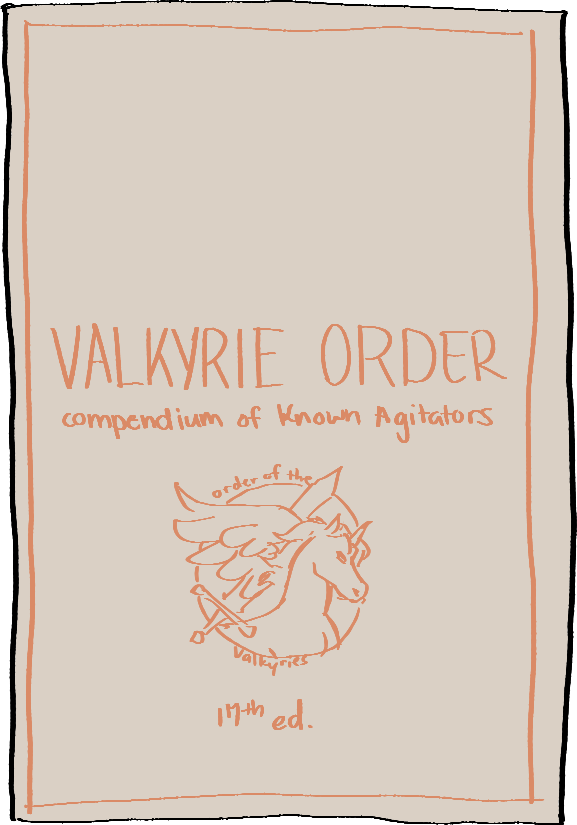 VALKYRIE ORDER
compendium of Known Agitators
order of the
Valkyries
17th ed.